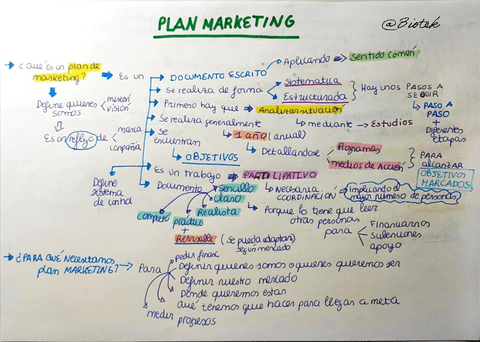 PLAN MARKETING
@Biotek
¿Qué es un plan de marketing?
Es un
DOCUMENTO ESCRITO
Aplicando
Sentido común
Se realiza de forma
Sistematica
Estructurada
Hay unos PASOS A SEGUIR
PASO A PASO
+
Diferentes Etapas
Define quienes somos
misión
visión
Es un reflejo de
marca
compañía
Primero hay que
Analizar situación
Se realiza generalmente
1 año (anual)
mediante
Estudios
Se encuentran
OBJETIVOS
Detallandose
Programas
medios de Acción
PARA alcanzar
OBJETIVOS MARCADOS
Es un trabajo
PARTICIPATIVO
Necesaria COORDINACIÓN
implicando el mayor número de personas
Documento
Sencillo
claro
Realista
práctico
completo
+
Revisable
(Se pueda adaptar) según mercado
Porque lo tiene que leer otras personas
para
Financiarnos
Subvenciones
apoyo
¿PARA QUÉ NECESITAMOS plan MARKETING?
Para
pedir financ
Definir quienes somos o quienes queremos ser
Definir nuestro mercado
Dónde queremos estar
qué tenemos que hacer para llegar a meta
medir progresos